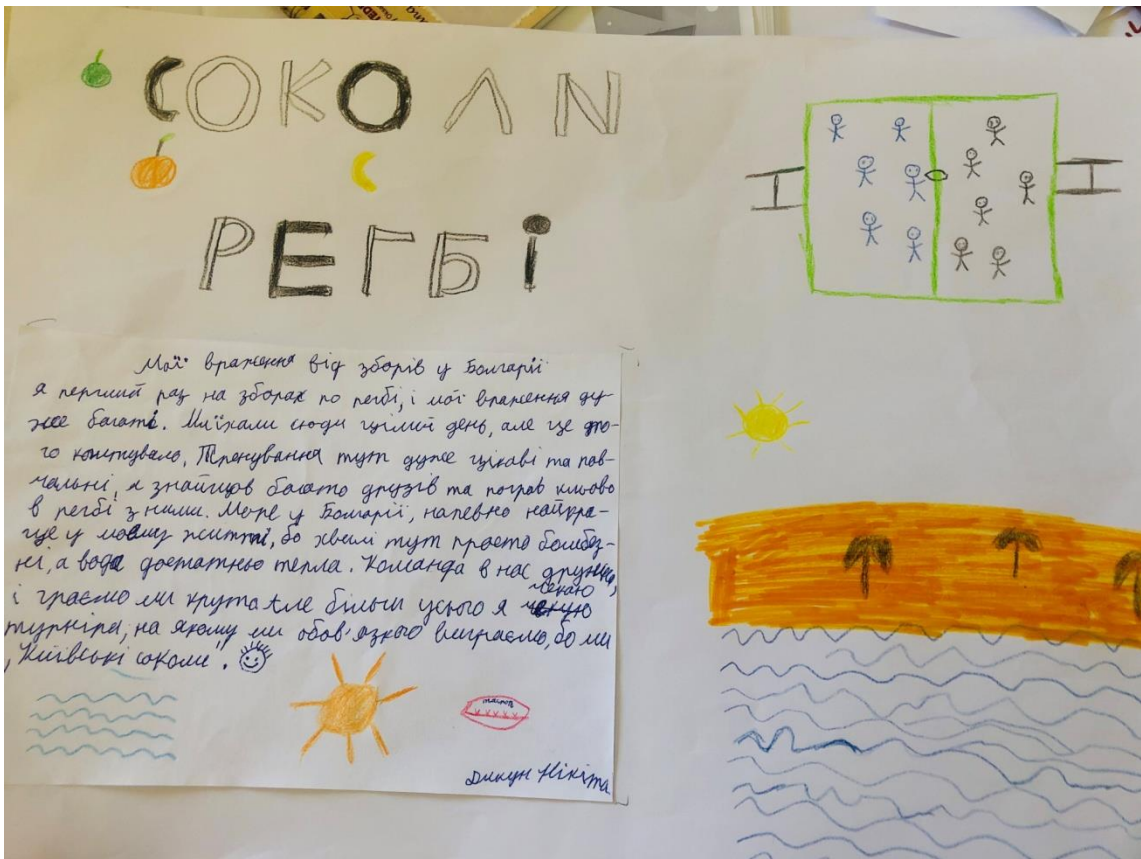 СОКОЛИ
РЕГБІ
Мої враження від зборів у Болгарії
я перший раз на зборах по регбі, і мої враження ду-
же багаті. Ми їхали сюди цілий день, але це то-
го коштувало. Тренування тут дуже цікаві та пов-
чальні, я знайшов багато друзів та пограв кльово
в регбі з ними. Море у Болгарії, напевно найкра-
ще у моєму житті, бо хвилі тут просто бомбез-
ні, а вода достатньо тепла. Команда в нас дружна,
і граємо ми круто. Але більш усього я чекаю
турніра, на якому ми обов'язково виграємо, бо ми
„Київські соколи".
Дикун Нікіта